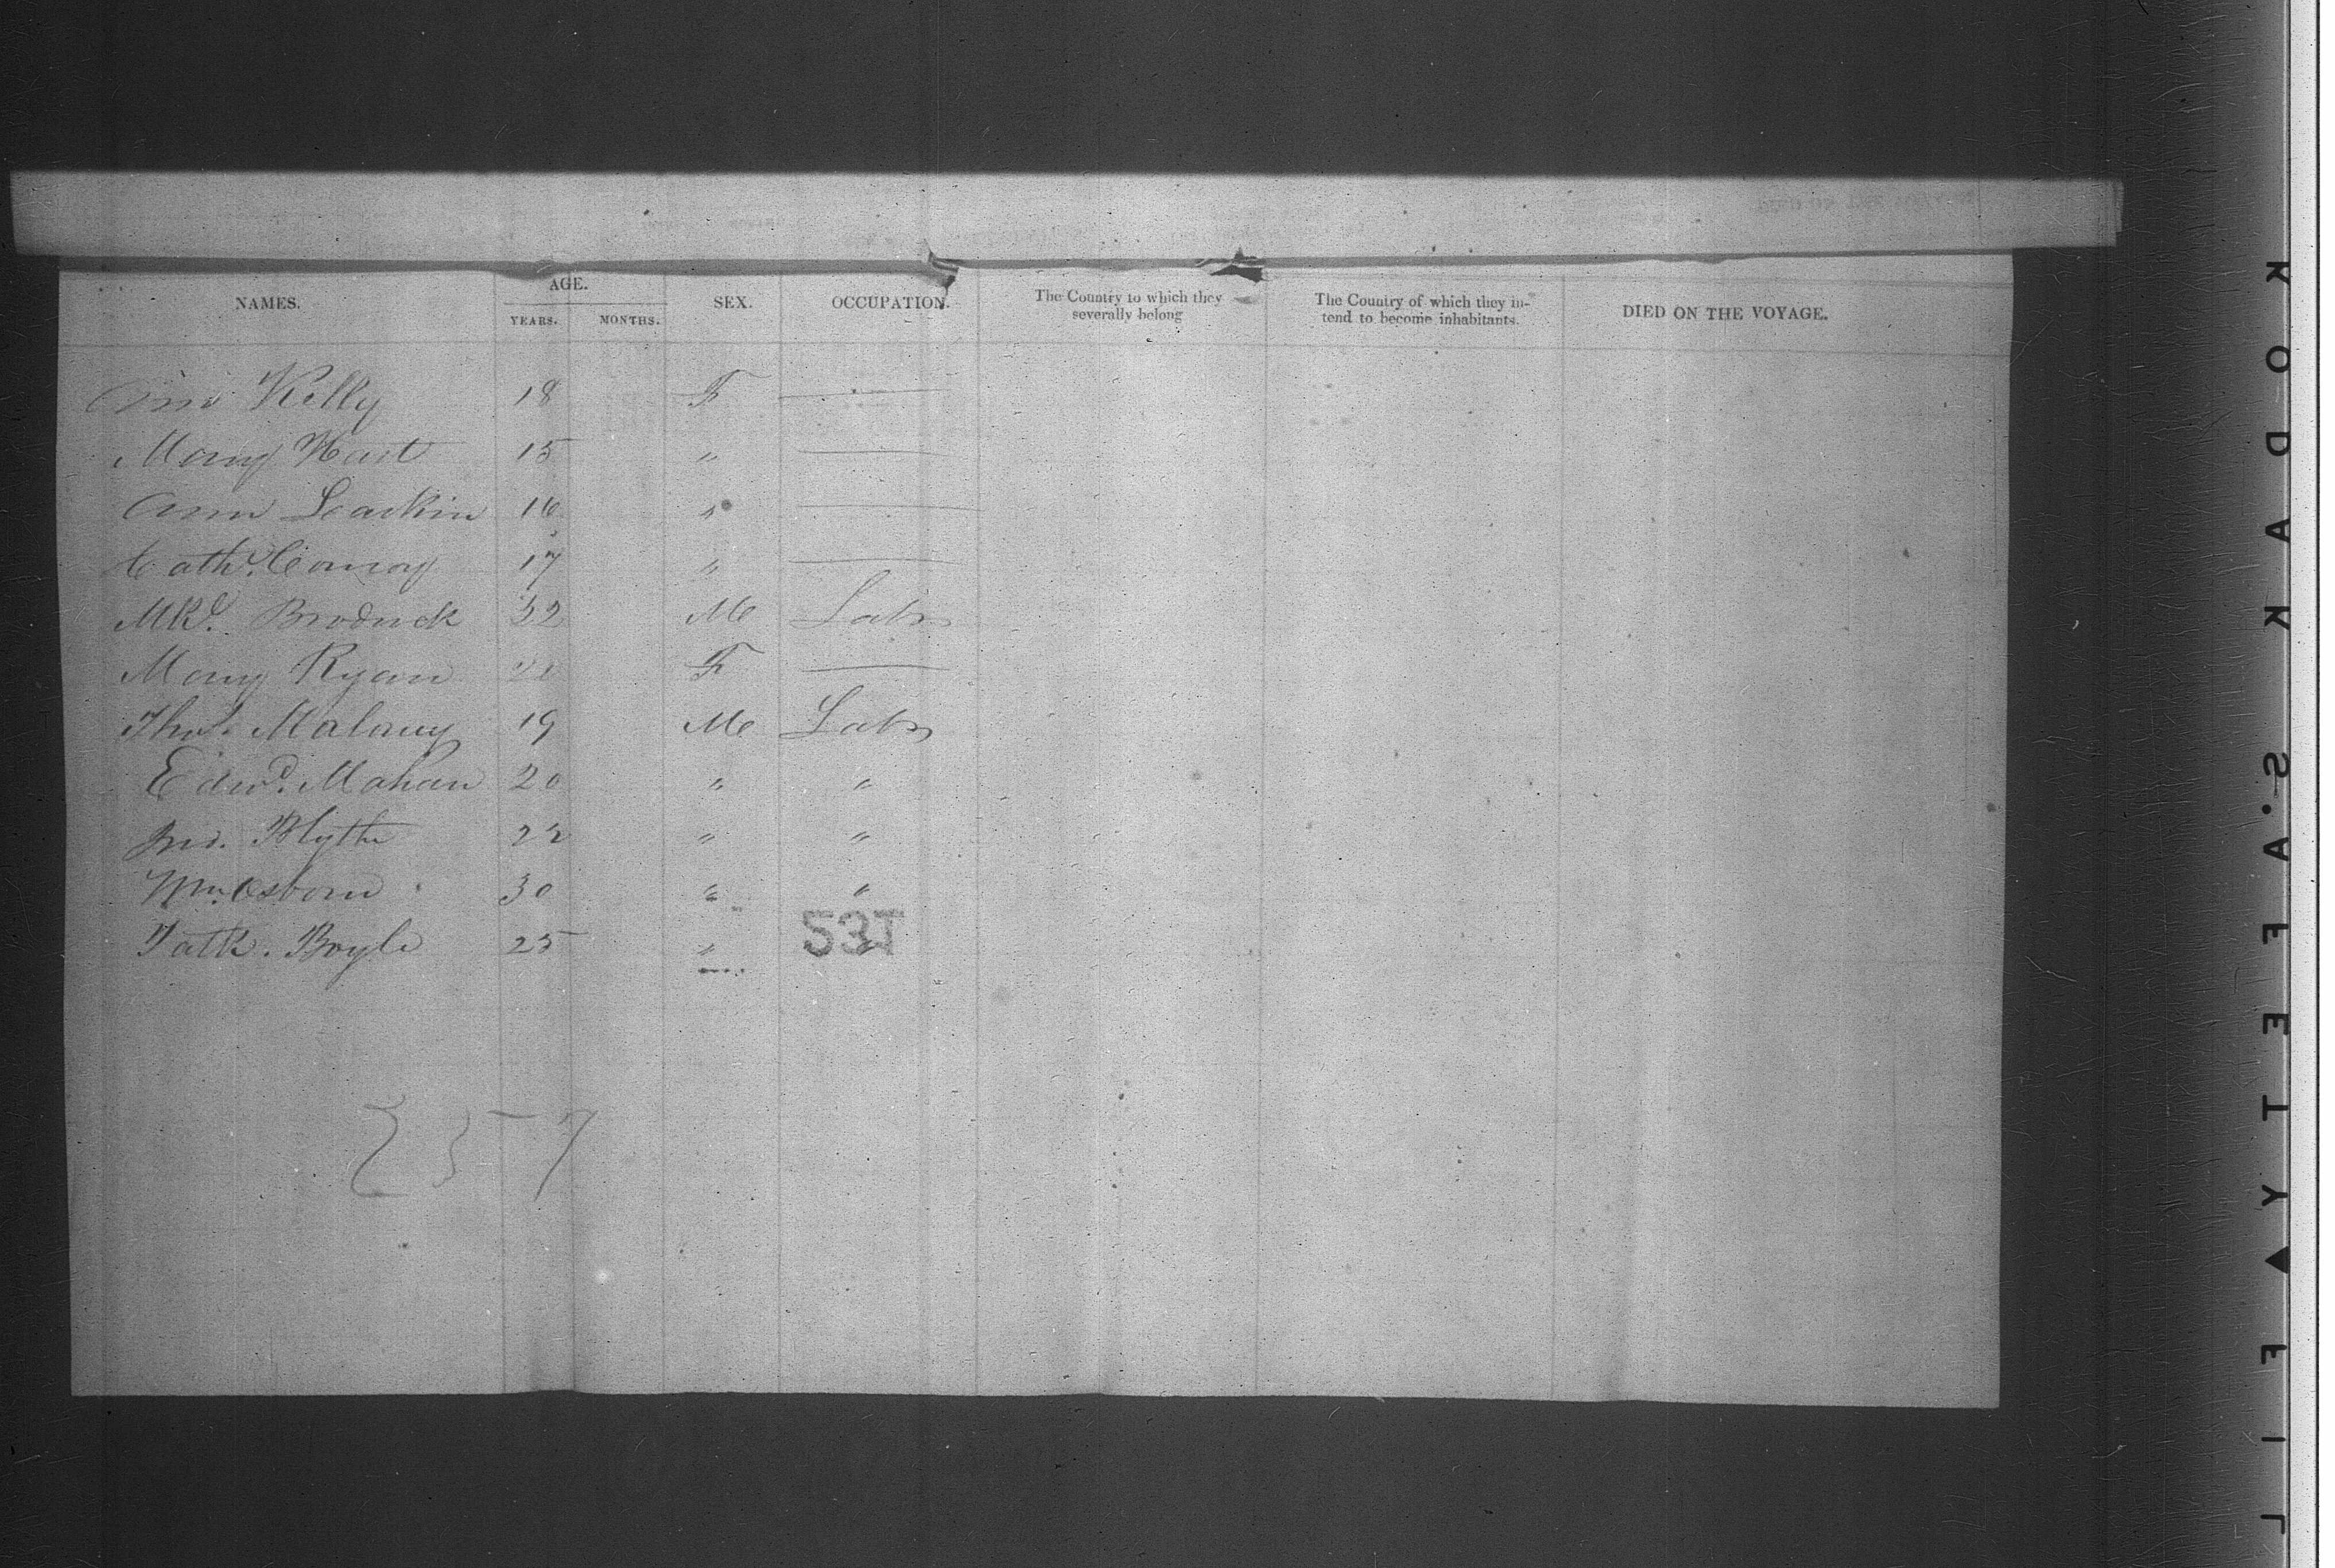 NAMES. AGE. SEX. OCCUPATION. The Country to which they severally belong The Country of which they intend to become inhabitants. DIED ON THE VOYAGE.
YEARS. MONTHS.
Ann Kelly 18 F —
Mary Hart 15 " —
Ann Leackin 16 " —
Cath. Conroy 17 " —
Mkl. Brodrick 32 Me Labr
Mary Ryan F —
Thos. Malany 19 Me Labr
Edwd. Mahan 20 " "
Jno. Blythe 22 " "
Wm. Osborn 30 " "
Patk. Boyle 25 " "
KODAK S.AFETY▲FIL